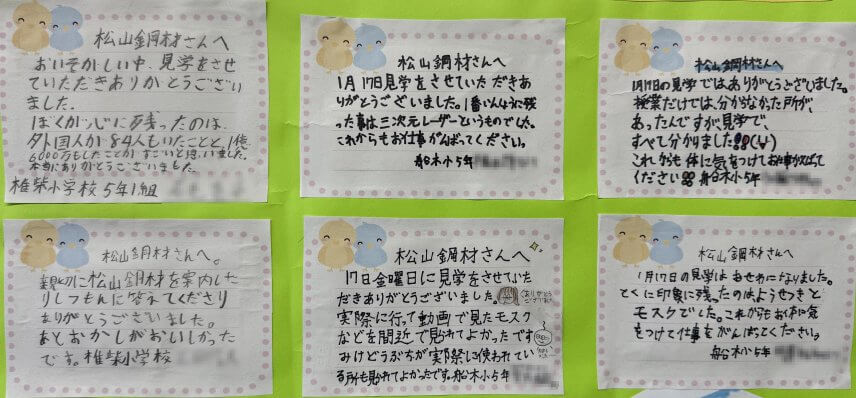 松山鋼材さんへ
おいそがしい中、見学をさせ
ていただきありがとうござい
ました。
ぼくが心に残ったのは、
外国人が84人もいたことと、1億
6000万もしたことがすごいと思いました。
本当にありがとうございました。
椎柴小学校5年1組
松山鋼材さんへ
1月17日見学をさせていただきあ
りがとうございました。1番いんしょうに残っ
た事は三次元レーザーというものでした。
これからもお仕事がんばってください。
船木小5年
松山鋼材さんへ
1月17日の見学ではありがとうございました。
授業だけでは、分からなかった所が、
あったんですが見学で、
すべて分かりました
これからも体に気をつけてお仕事がんばって
ください 船木小5年
松山鋼材さんへ。
親切に松山鋼材を案内した
りしつもんに答えてくださり
ありがとうございました。
あとおかしがおいしかった
です。椎柴小学校
松山鋼材さんへ
17日金曜日に見学をさせていた
だきありがとうございました。
ありがとうございます
実際に行って動画で見たモスク
などを間近で見れてよかったです
みけどうぶちが実際に使われてい
る所も見れてよかったです。船木小5年
松山鋼材さんへ
1月17日の見学はおせわになりました。
とくに印象に残ったのは、ようせつきと
モスクでした。これからもお体に気
をつけて仕事をがんばってください。
船木小5年